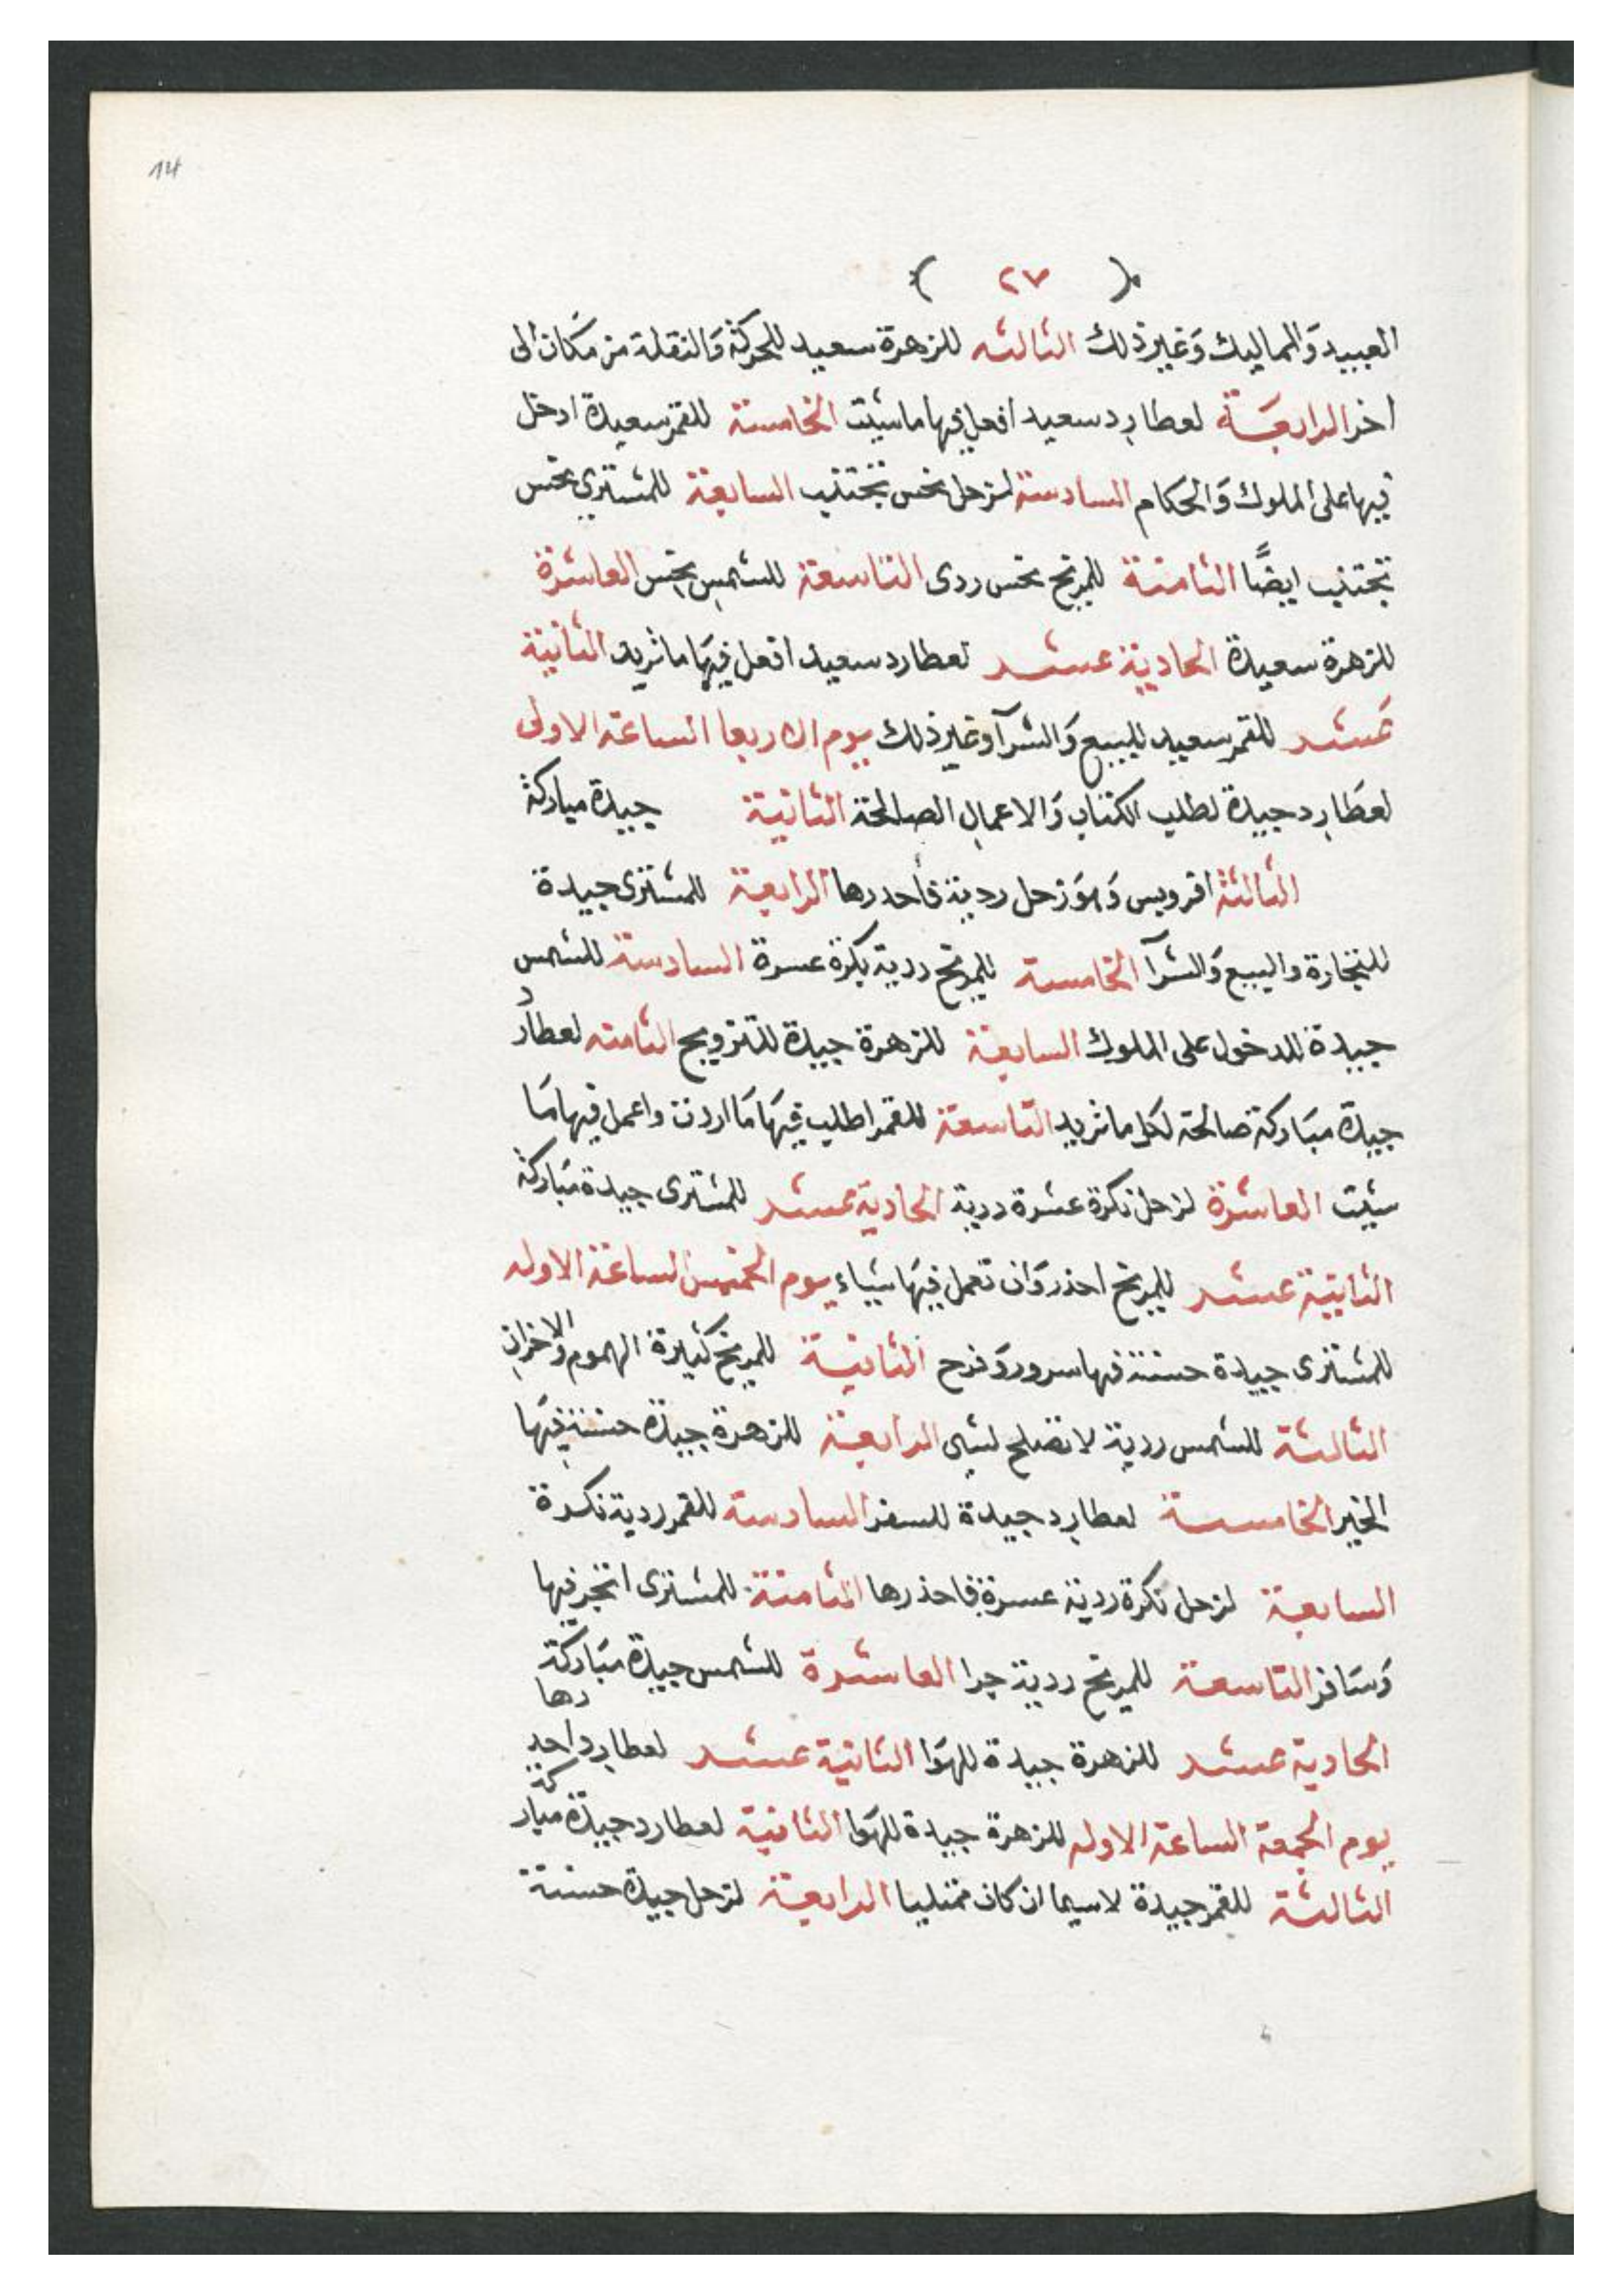 14
( ٢٧ )
العبيد وَالمماليك وَغير ذلك الثالثه للزهرة سعيد للحركة وَالنقلة من مكان الى
اخر الرابعَة لعطارد سعيد افعل فيها ما شيت الخامسة للقمر سعيدة ادخل
فيها على الملوك وَالحكام السادسة لزحل نحس تجتنب السابعة للمشتري نحس
تجتنب ايضًا الثامنة للمريخ نحس ردى التاسعة للشمس نحس العاشرة
للزهرة سعيدة الحادية عشر لعطارد سعيد افعل فيهَا ما تريد الثانية
عَشر للقمر سعيد للبيع وَالشرآ وغير ذلك يوم الاربعا الساعة الاولى
لعطَارد جيدة لطلب الكتاب وَالاعمال الصالحة الثانية جيدة مباركة
الثالثة اقرويس وَهوَ زحل ردية فاحدرها الرابعة للمشترى جيدة
للتجارة والبيع وَالشرآ الخامسة للمريخ ردية نكرة عسرة السادسة للشمس
جيدة للدخول على الملوك السابعة للزهرة جيدة للتزويج الثامنه لعطارد
جيدة مبَاركة صالحة لكل ما تريد التاسعة للقمر اطلب فيهَا مَا اردت واعمل فيها مَا
شيت العاشرة لزحل نكرة عشرة ردية الحادية عشر للمشترى جيدة مبَاركة
الثانية عشر للمريخ احذر وَان تعمل فيهَا شياء يوم الخميس الساعة الاوله
للمشترى جيدة حسنة فيها سرور وَفرح الثانية للمريخ كثيرة الهموم وَالاحزان
الثالثة للشمس ردية لا تصلح لشى الرابعة للزهرة جيدة حسنة فيهَا
الخير الخامسة لعطارد جيدة للسفر السادسة للقمر ردية نكرة
السابعة لزحل نكرة ردية عسرة فاحذرها الثامنة للمشترى اتجر فيها
وَسَافر التاسعة للمريخ ردية جدا العاشرة للشمس جيدة مبَاركة
الحادية عشر للزهرة جيدة للهوَا الثانية عشر لعطارد احدرها
يوم الجمعة الساعة الاوله للزهرة جيدة للهوَا الثانية لعطارد جيدة مباركة
الثالثة للقمر جيدة لاسيما ان كان ممتليا الرابعة لزحل جيدة حسنة